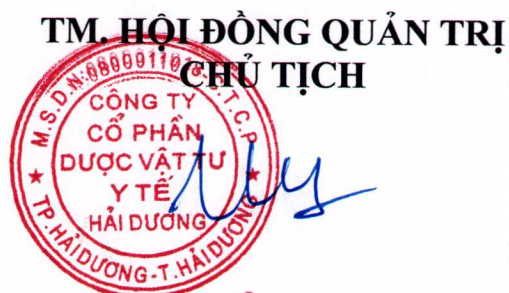 TM. HỘI ĐỒNG QUẢN TRỊ
CHỦ TỊCH
CÔNG TY
CỔ PHẦN
DƯỢC VẬT TƯ
Y TẾ
HẢI DƯƠNG
TP. HẢI DƯƠNG - T. HẢI DƯƠNG